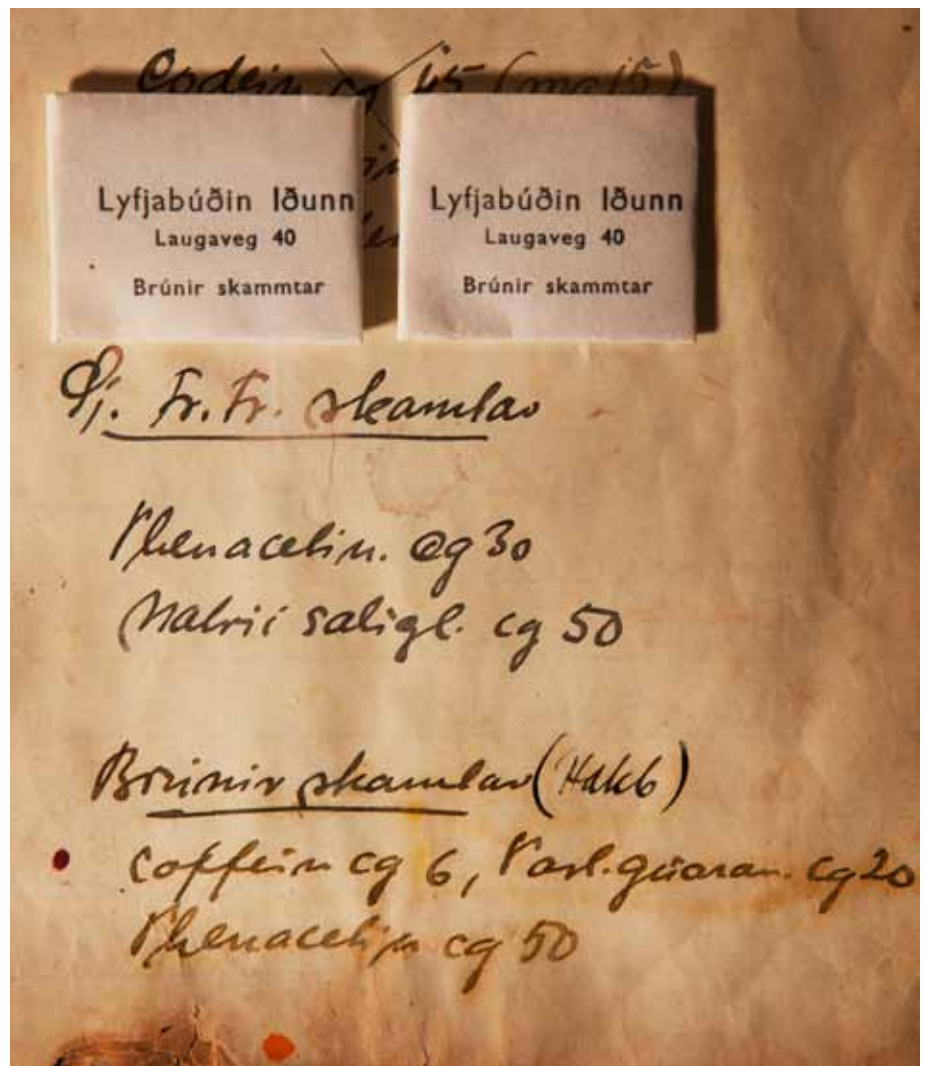 Codein cg 45
Lyfjabúðin Iðunn
Laugaveg 40
Brúnir skammtar
Lyfjabúðin Iðunn
Laugaveg 40
Brúnir skammtar
Fr. Fr. skamtar
Phenacetin. cg 30
Natrii salicyl. cg 50
Brúnir skamtar
Coffein cg 6, Past. guaran. cg 20
Phenacetin cg 50